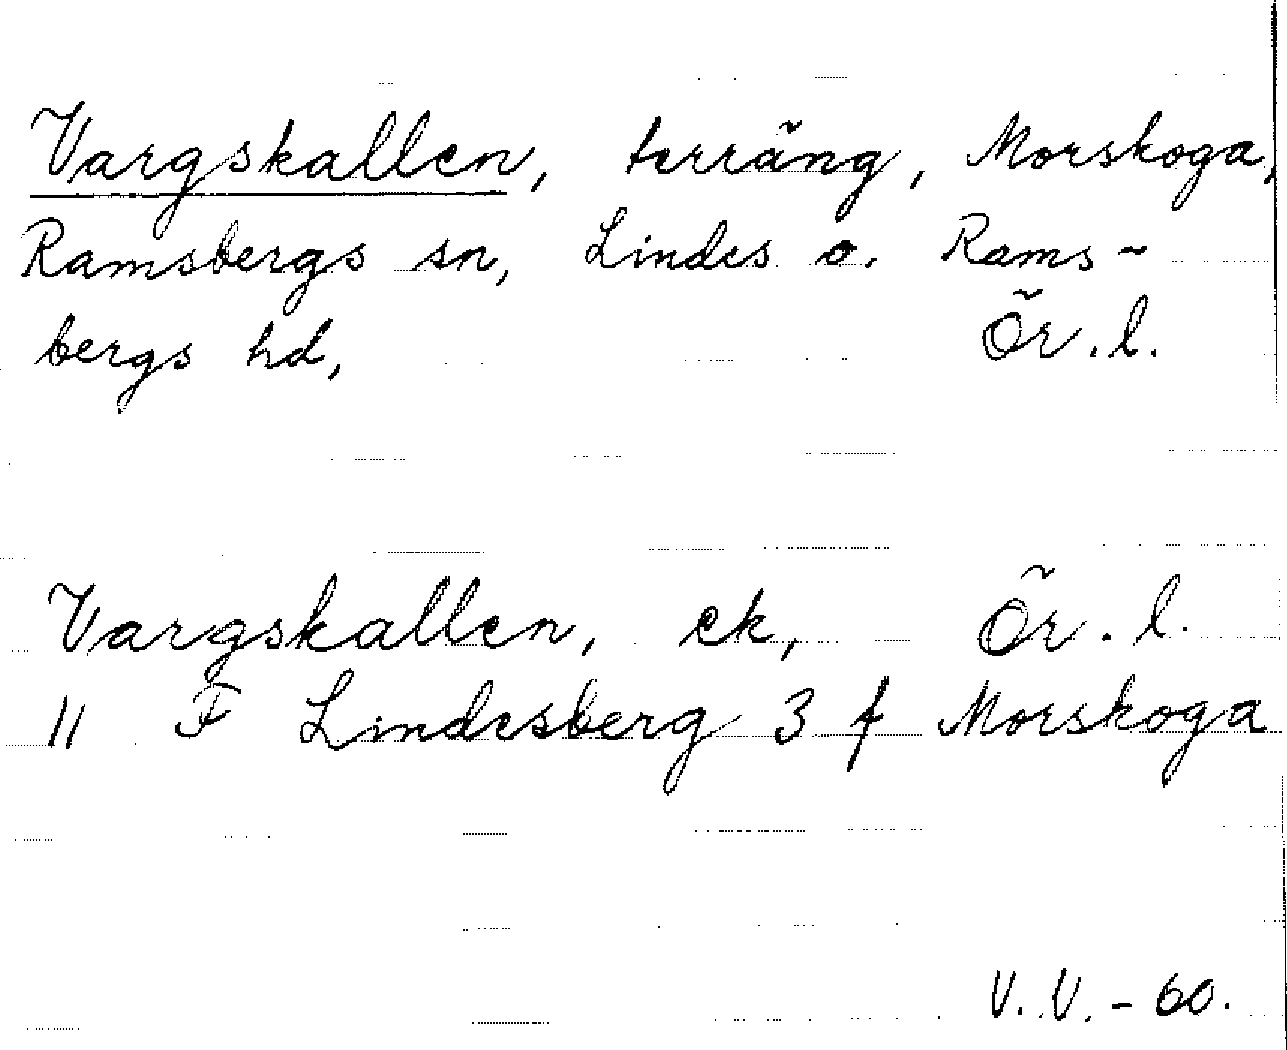 Vargskallen, terräng, Morskoga,
Ramsbergs sn, Lindes o. Rams-
bergs hd, Ör. l.
Vargskallen, ek, Ör. l.
11 F Lindesberg 3 f Morskoga
V. V. - 60.